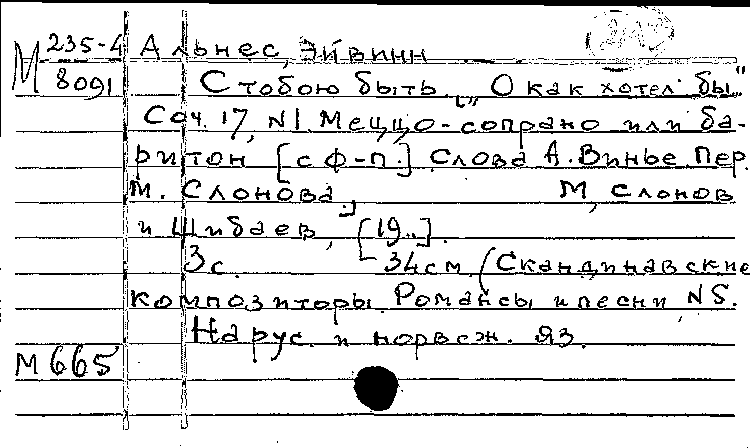 М 235-4 Альнес, Эйвинн
8091 С тобою быть. [„О как хотел бы"
Соч. 17, N1. Меццо-сопрано или ба-
ритон [с ф-п.] Слова А. Винье. Пер.
М. Слонова.] М, Слонов
и Шибаев, [19..].
3с. 34см. (Скандинавские
композиторы. Романсы и песни, N5.
На рус. и норвеж. яз.
М 665